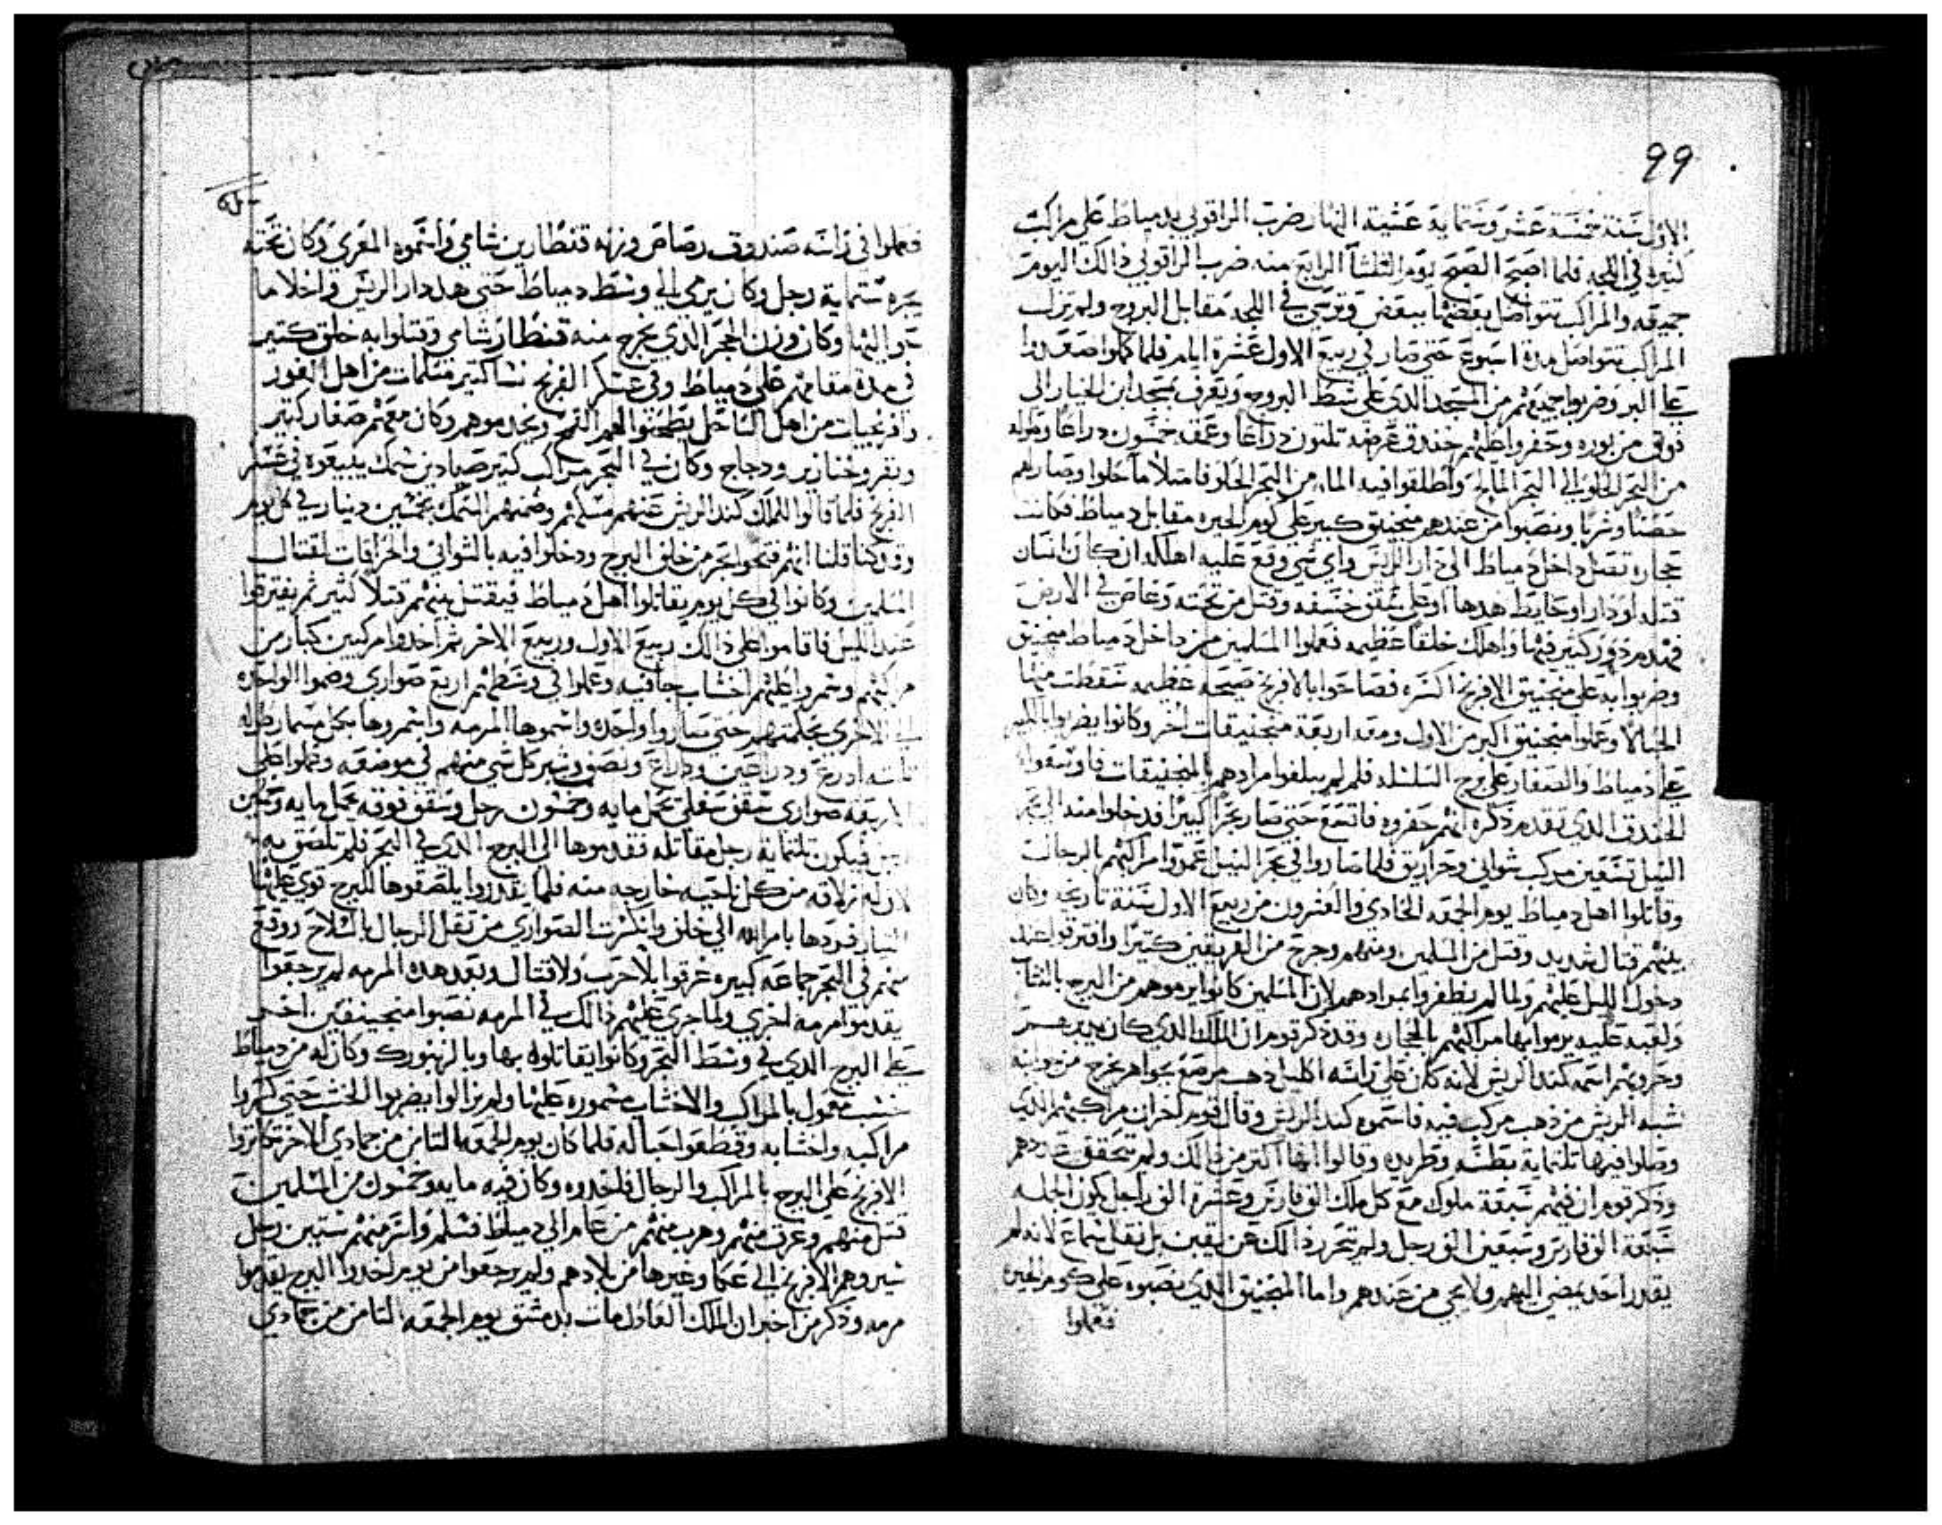 99
الاول سنة خمسة عشر وستماية عشية النهار ضرب الراقوبي بدمياط علي مراكب
كتيره في اللجه فلما اصبح الصبح يوم الثلثا الرابع منه ضرب الراقوبي ذالك اليوم
جميعه والمراكب تتواصل بعضها ببعض وترسي في اللجه مقابل البروج ولم تزل
المراكب تتواصل مدة اسبوع حتي صار في ربيع الاول عشرة ايام فلما كملوا صعدوا
علي البر وضربوا جميعهم من المسجد الذي علي شط البروجه ويعرف بمسجد ابن الخيار الي
فوق من بوره وحفروا عليهم خندق عرضه تلتون دراعا وعمقه خمسون دراعا وطوله
من البحر الحلو الي البحر المالح واطلقوا فيه الماء من البحر الحلو فامتلا ما حلوا وصار لهم
حصنا وشربا ونصبوا من عندهم منجنيق كبير علي كوم الجيزه مقابل دمياط فكانت
حجاره تصل داخل دمياط الي دار الريس واي شي وقع عليه اهلكه ان كان انسان
قتله او دار او حايط هدها او علي سقف خسفه وقتل من تحته وغاص في الارض
فهدم دور كتير فيها واهلك خلقا عظيمه فعملوا المسلمين من داخل دمياط منجنيق
وضربوا به علي منجنيق الافرنج اكسره فصاحوا بالافرنج صيحه عظيمه سقطت منها
الحبالا وعملوا منجنيق اكبر من الاول ومعه اربعة منجنيقات اخر وكانوا يضربوا بالكبير
علي دمياط والصغار علي برج السلسله فلم لم يبلغوا مرادهم بالمنجنيقات فاوسعوا
الخندق الذي تقدم ذكره انهم حفروه فاتسع حتي صار بحرا كبيرا فدخلوا منه الي بحر
النيل تسعين مركب شواني وحراريق فلما صاروا في بحر النيل عمروا مراكبهم بالرجال
وقاتلوا اهل دمياط يوم الجمعه الحادي والعشرون من ربيع الاول سنة تاريخه وكان
بينهم قتال شديد وقتل من المسلمين ومنهم وجرح من الفريقين كتيرا وافترقوا عند
دخول الليل عليهم ولما لم يظفروا بمرادهم لان المسلمين كانوا يرموهم من البرج بالنشاب
ولعبه عليه يرموا بها مراكبهم بالحجاره وقد ذكر قوم ان الملك الذي كان يدبرهم
وحروبهم اسمه كند الريش لانه كان علي راسه اكليل ذهب مرصع بجواهر يخرج من جوانبه
شبه الريش من ذهب مركب فيه فاسموه كند الريش وقال قوم اخر ان مراكبهم الذي
وصلوا فيها تلتماية بطسه وطريده وقالوا انها اكتر من ذالك ولم تتحقق عددهم
وذكر قوم ان فيهم سبعة ملوك مع كل ملك الف فارس وعشرة الف راجل يكون الجمله
سبعة الف فارس وسبعين الف رجل ولم تتحرر ذالك عن يقين بل نقل سماع لانه لم
يقدر احد يمضي اليهم ولا يجي من عندهم واما المنجنيق الذي نصبوه علي كوم الجيزه
فعملوا
فعملوا في راسه صندوق رصاص وزنه قنطارين شامي واسموه المغري وكان تحته
يجره ستماية رجل وكان يرمي الي وسط دمياط حتي هد دار الريس واخلا ما
حواليها وكان وزن الحجر الذي يخرج منه قنطار شامي وقتلوا به خلق كتير
في مدة مقامهم علي دمياط وفي عسكر الفرنج نسا كتير مسلمات من اهل الغور
وافرنجيات من اهل الساحل يطحنوا لهم القمح ويخدموهم وكان معهم صغار كتير
وبقر وخنازير ودجاج وكان في البحر مراكب كتير صيادين سمك يبيعوه في عسكر
الفرنج فلما قالوا للملك كند الريش عنهم مسكهم وضمنهم السمك بخمسين دينار في كل يوم
وقد كنا قلنا انهم فتحوا بحر من خلف البرج ودخلوا فيه بالشواني والحراقات لقتال
المسلمين وكانوا في كل يوم يقاتلوا اهل دمياط فيقتتل بينهم قتلا كثير ثم يفترقوا
عند الليل فاقاموا علي ذالك ربيع الاول وربيع الاخر ثم اخذوا مركبين كبار من
مراكبهم وسمروا عليهم اخشاب جافيه وعملوا في وسطهم اربع صواري وضموا الواحده
الي الاخري بجملتهم حتي صاروا واحده واسموها المرمه واسمروها بكل مسمار طوله
تلته ادرع ودراعين ودراع ونصف وشبر كل شي منهم في موضعه وعملوا علي
الاربعه صواري سقف سفلي يحمل مايه وخمسون رجل وسقف فوقه يحمل مايه وخمسين
فيكون تلتماية رجل مقاتله فقدموها الي البرج الذي في البحر فلم تلصق به
لان له زلاقه من كل ناحيه خارجه منه فلما يقدروا يلصقوها للبرج قوي عليها
التيار فردها بامر الله الي خلف وانكسرت الصواري من تقل الرجال بالسلاح ووقع
منهم في البحر جماعه كبيره غرقوا بلا حرب ولا قتال وبعد هده المرمه لم يرجعوا
يقدموا مرمه اخري ولما جري عليهم ذالك في المرمه نصبوا منجنيقين اخر
علي البرج الذي في وسط البحر وكانوا يقاتلوه بها وبالزنبورك وكان له من دمياط
معمول بالمراكب والاخشاب مسموره عليها ولم يزالوا يضربوا الخشب حتي كسروا
مراكبه واخشابه وقطعوا حباله فلما كان يوم الجمعه التامن من جمادي الاخر تكاتروا
الافرنج علي البرج بالمراكب والرجال فاخدوه وكان فيه مايه وخمسون من المسلمين
قتل منهم وغرق منهم وهرب منهم من عام الي دمياط فسلم وانسر منهم ستين رجل
سيروهم الافرنج الي عكا وغيرها من بلادهم ولم يرجعوا من يوم اخدوا البرج يقدموا
مرمه وذكر من اخبر ان الملك العادل مات بدمشق يوم الجمعه التامن من جمادي